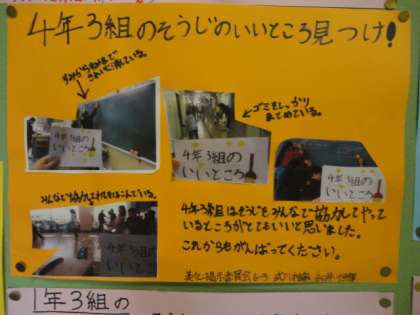 4年3組のそうじのいいところ見つけ!
すみからすみまで
きれいに消している。
ゴミをしっかり
まとめている。
4年3組の
いいところ
4年3組の
いいところ
4年3組の
いいところ
みんなで協力してつくえをはこんでいる。
4年3組の
いいところ
4年3組はそうじをみんなで協力してやって
いるところがとてもいいと思いました。
これからもがんばってください。
美化・掲示委員会6-3
年3組の